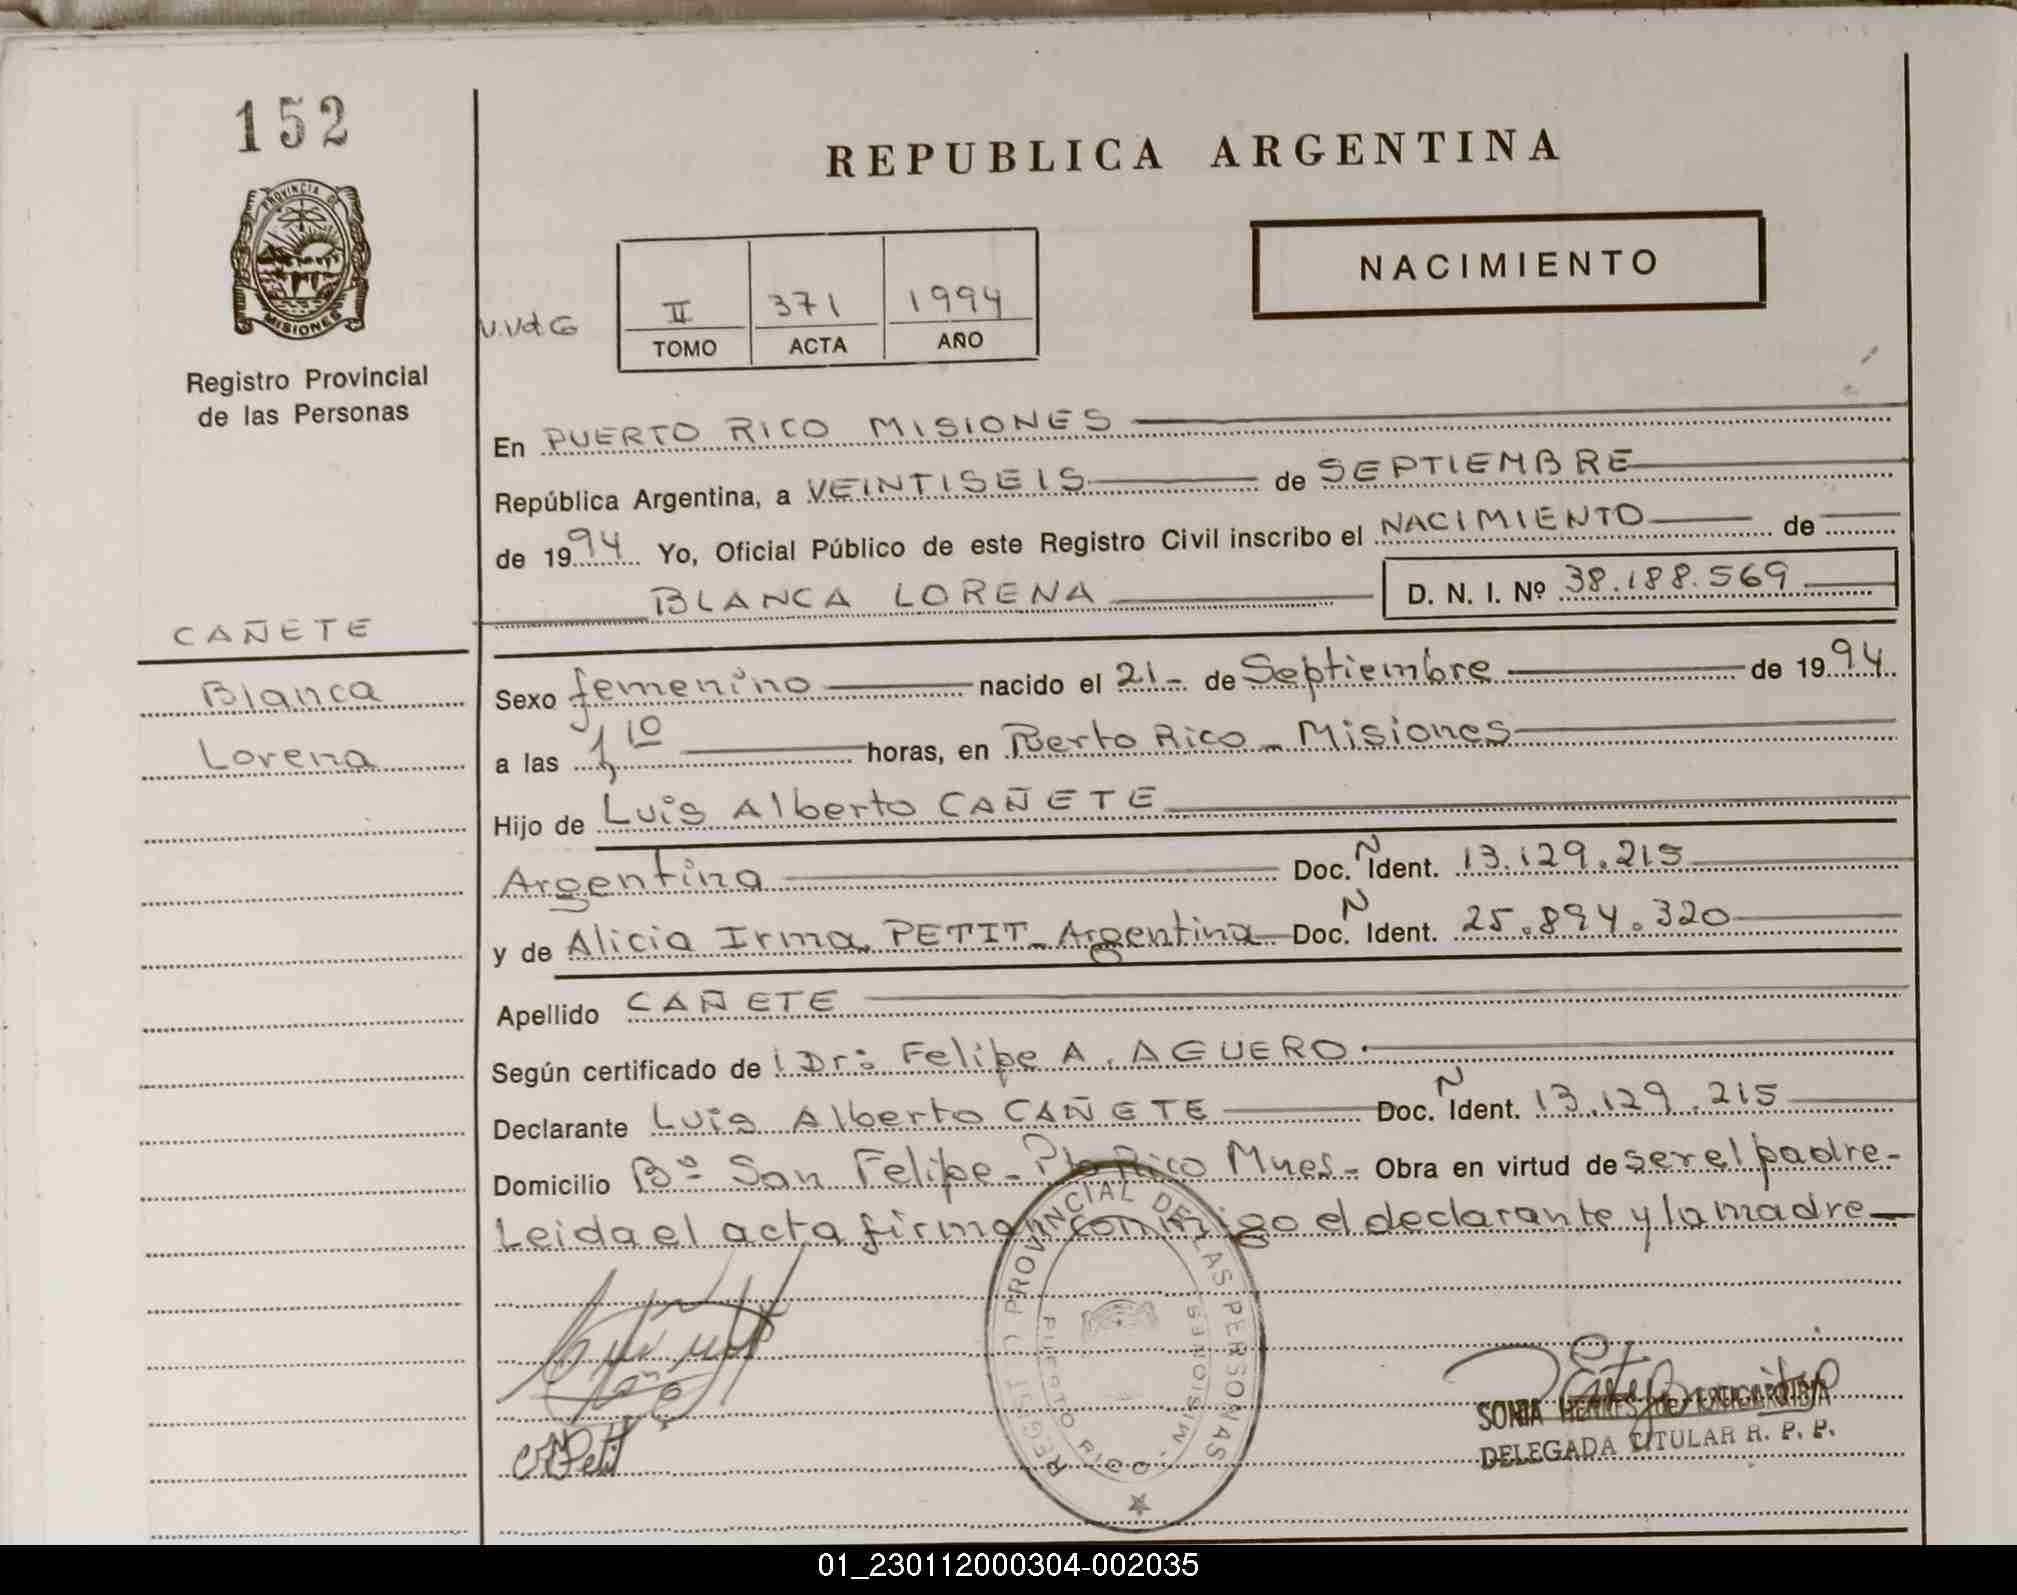 152
PROVINCIA DE
MISIONES
Registro Provincial
de las Personas
REPUBLICA ARGENTINA
NACIMIENTO
II 371 1994
TOMO ACTA AÑO
En PUERTO RICO MISIONES
República Argentina, a VEINTISEIS de SEPTIEMBRE
de 1994 Yo, Oficial Público de este Registro Civil inscribo el NACIMIENTO de
BLANCA LORENA D. N. I. Nº 38.188.569
CAÑETE
Blanca
Lorena
Sexo femenino nacido el 21- de Septiembre de 1994
a las 1 10 horas, en Puerto Rico - Misiones
Hijo de Luis Alberto CAÑETE
Argentina Doc. N Ident. 13.129.215
y de Alicia Irma PETIT - Argentina Doc. N Ident. 25.894.320
Apellido CAÑETE
Según certificado de Dr: Felipe A. AGUERO
Declarante Luis Alberto CAÑETE Doc. N Ident. 13.129.215
Domicilio Bº San Felipe - Pto Rico Mnes - Obra en virtud de ser el padre -
Leida el acta firman conmigo el declarante y la madre
REGIST O PROVINCIAL DE LAS PERSONAS
PUERTO RICO - MISIONES
Petit
SONIA
DELEGADA TITULAR R. P. P.
01_230112000304-002035